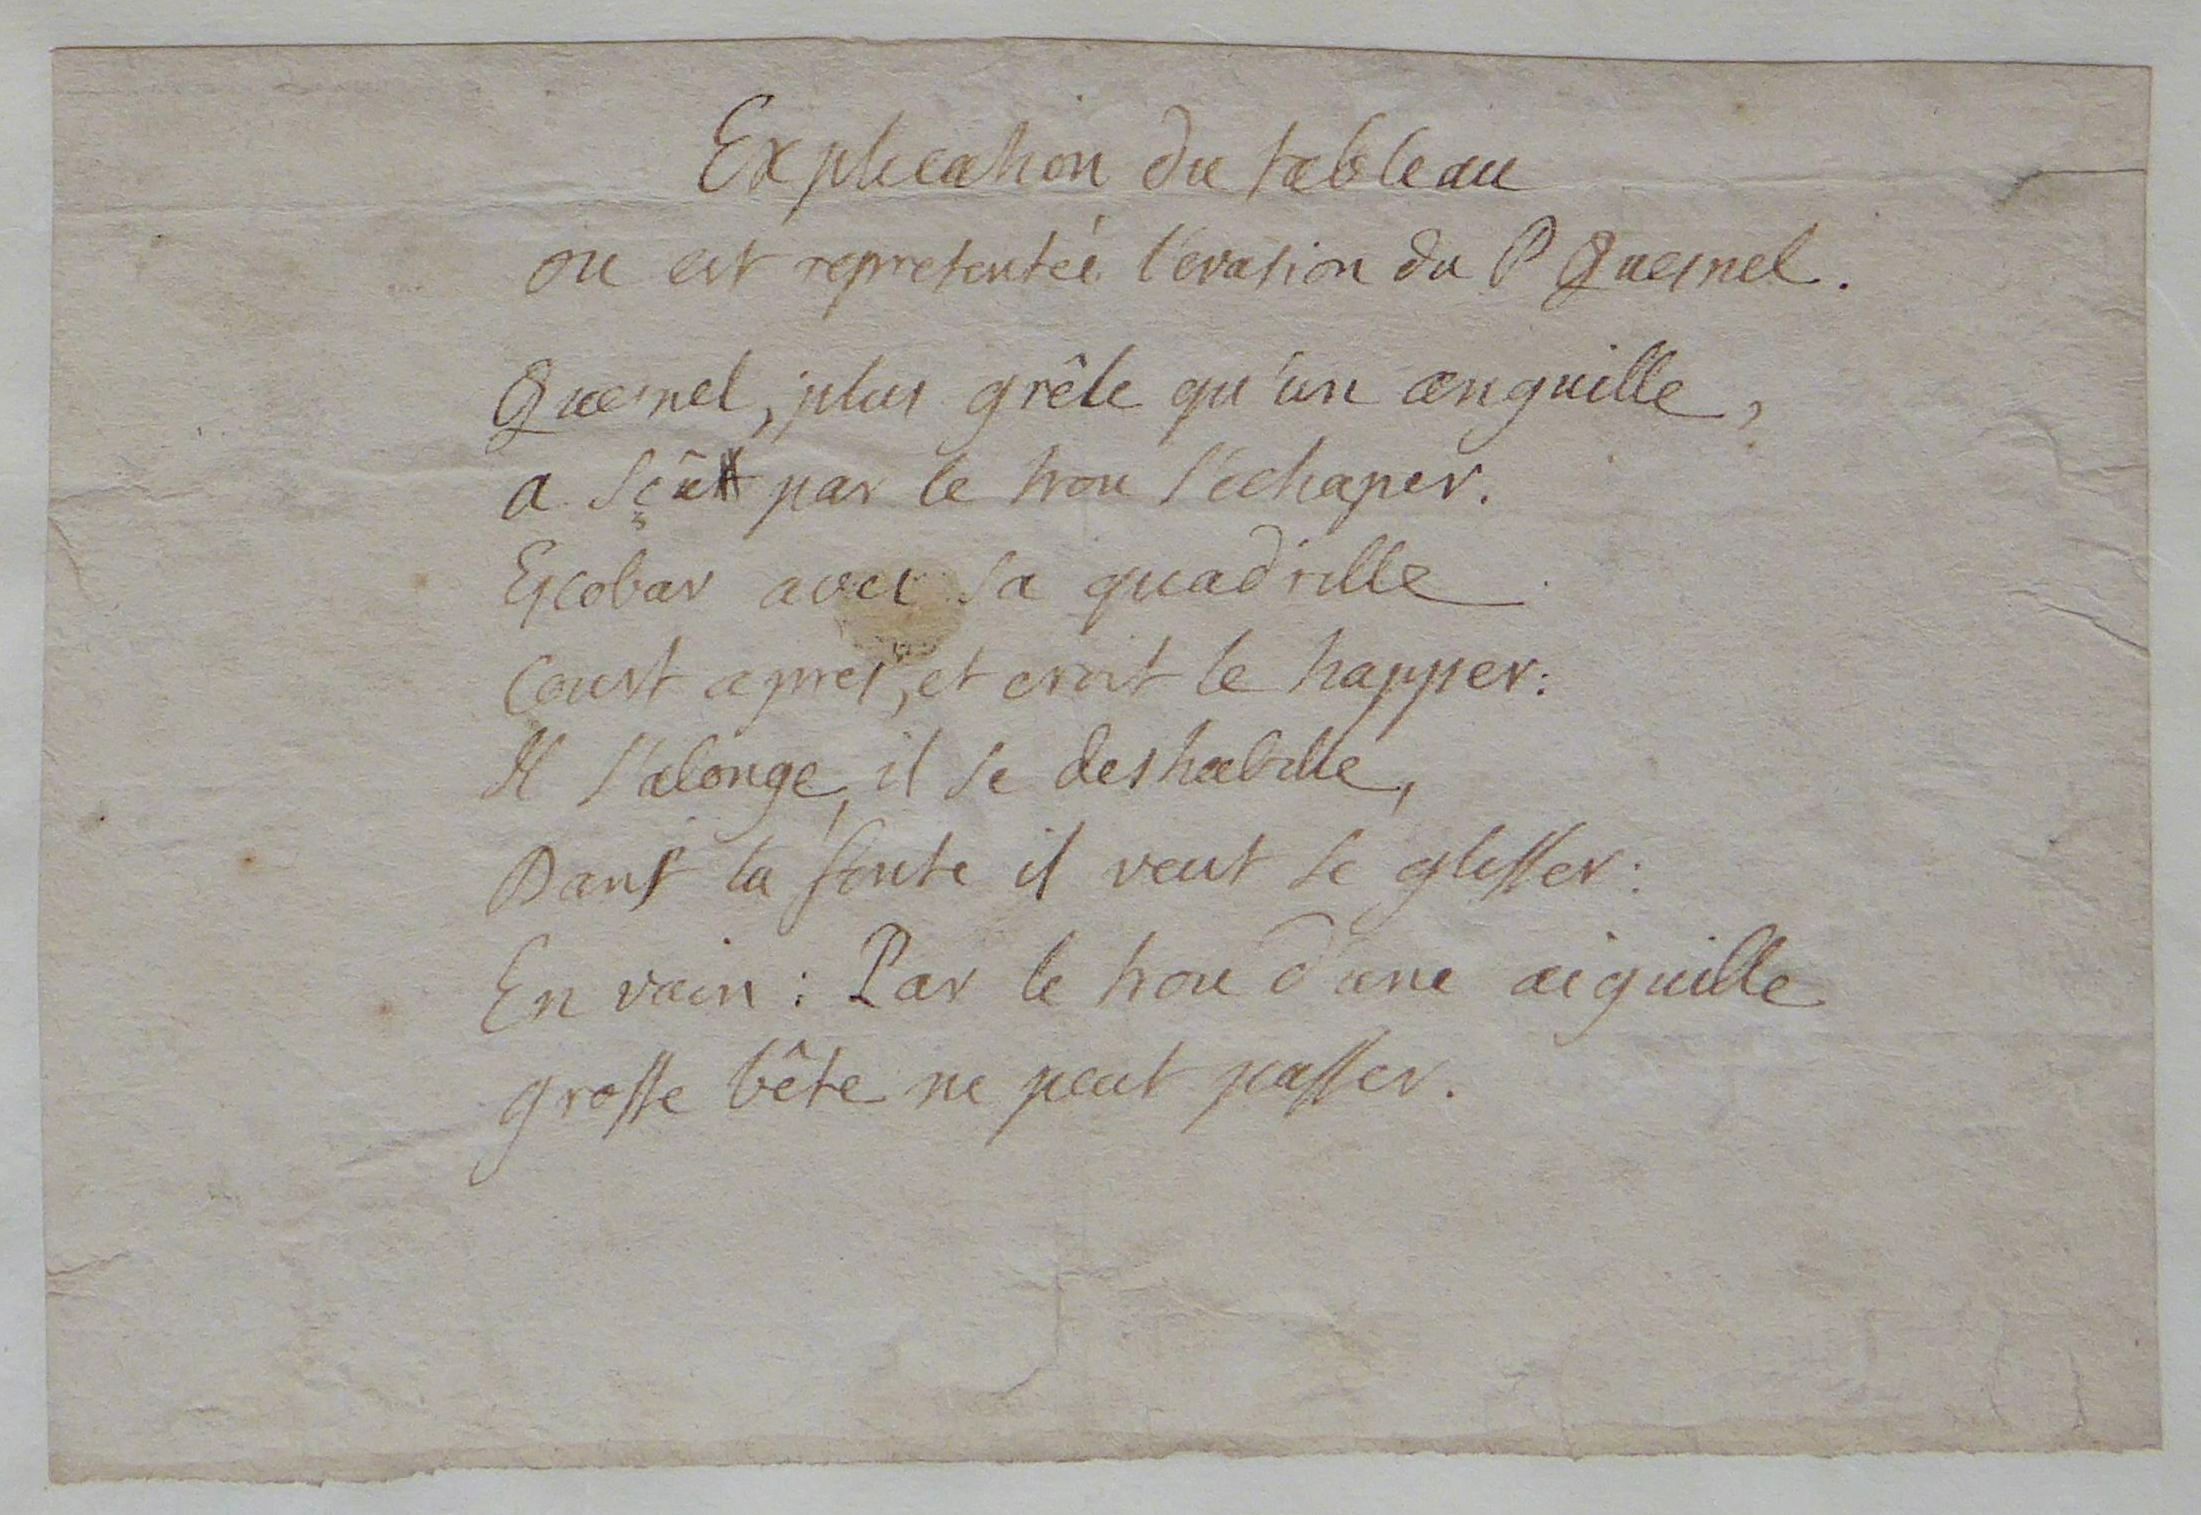 Explication du tableau
ou est representée l'evasion du P Quesnel.
Quesnel, plus grêle qu'un anguille,
a sçû par le trou s'echaper.
Escobar avec sa quadrille
Court apres, et croit le happer:
Il s'alonge, il se deshabille,
Dans la fente il veut se glisser:
En vain: Par le trou d'une aiguille
grosse bête ne peut passer.